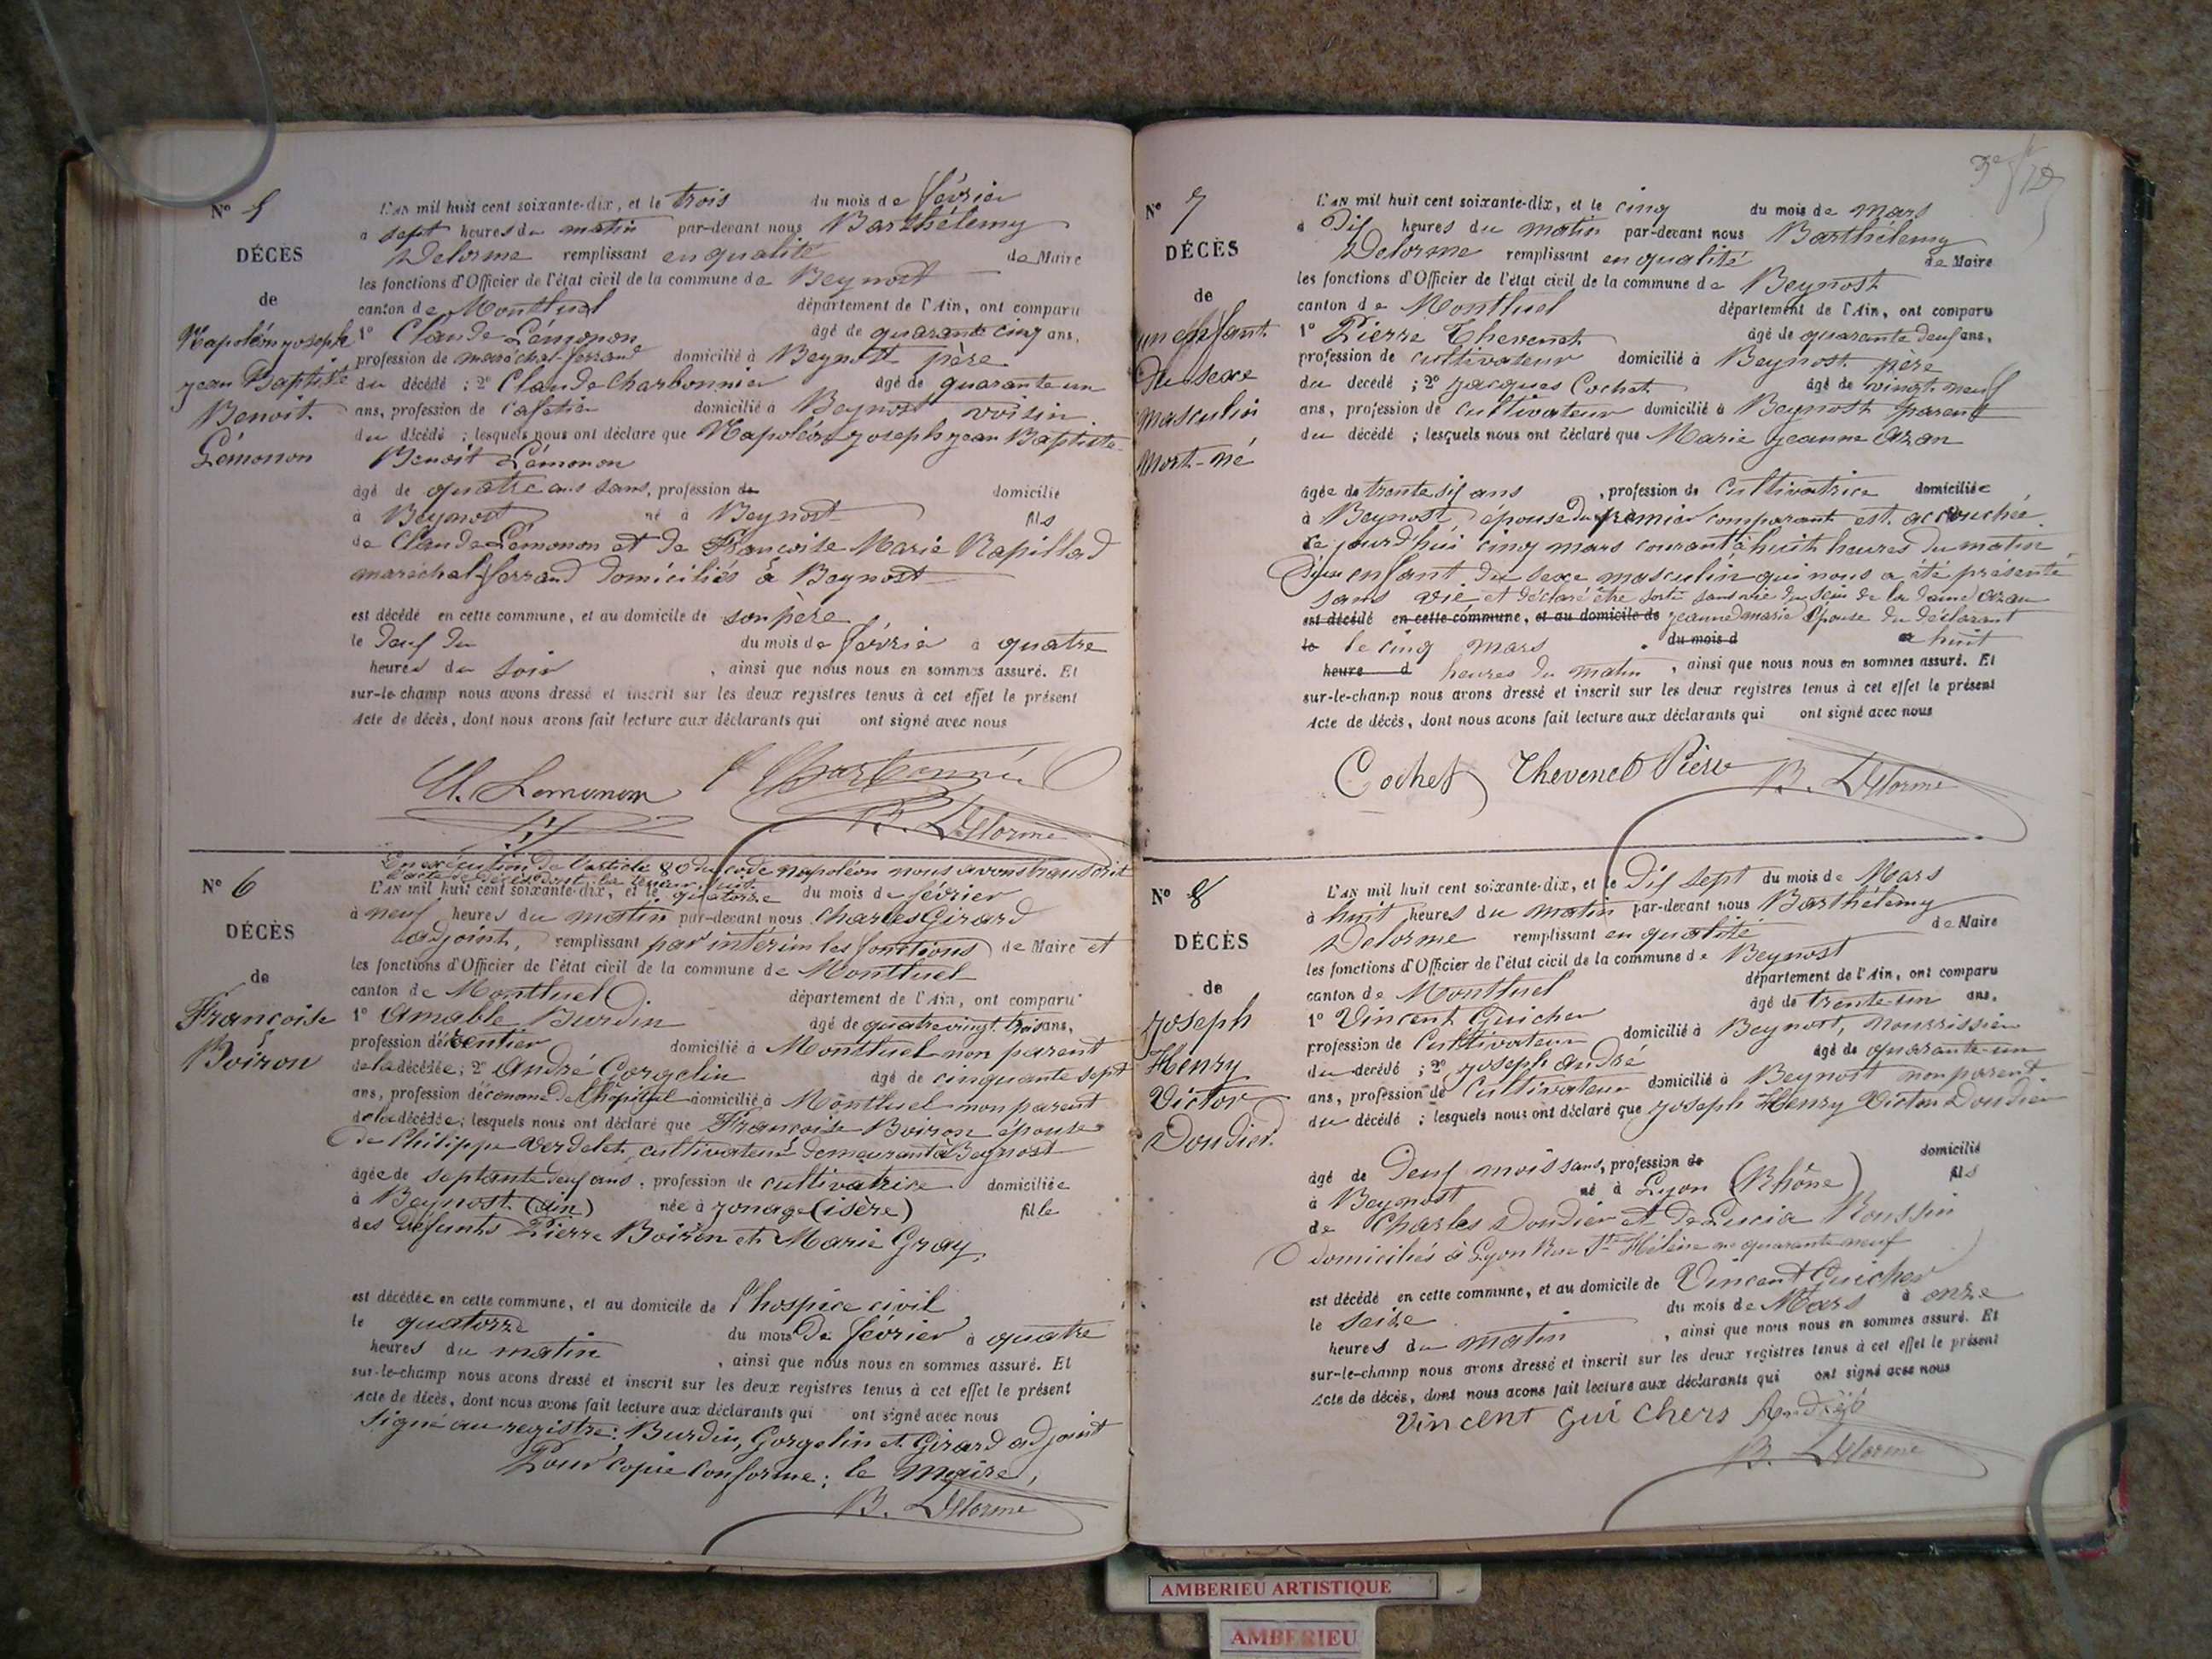 N° 5
DÉCÈS
de
Napoléon joseph
jean Baptiste
Benoit
Lémonon
L'AN mil huit cent soixante-dix, et le trois du mois de février
à sept heures du matin par-devant nous Barthélemy
Delorme remplissant en qualité de Maire
les fonctions d'Officier de l'état civil de la commune de Beynost
canton de Montluel département de l'Ain, ont comparu
1° Claude Lémonon âgé de quarante cinq ans,
profession de maréchal-ferrand domicilié à Beynost père
du décédé ; 2° Claude Charbonnier âgé de quarante un
ans, profession de cafetier domicilié à Beynost voisin
du décédé ; lesquels nous ont déclaré que Napoléon joseph jean Baptiste
Benoit Lémonon
âgé de quatre ans sans, profession de domicilié
à Beynost né à Beynost fils
de Claude Lémonon et de Françoise Marie Rapillard
maréchal-ferrand domiciliés à Beynost
est décédé en cette commune, et au domicile de son père
le deux du du mois de février à quatre
heures du soir , ainsi que nous nous en sommes assuré. Et
sur-le-champ nous avons dressé et inscrit sur les deux registres tenus à cet effet le présent
Acte de décès, dont nous avons fait lecture aux déclarants qui ont signé avec nous
Cl. Lemonon Charbonnié
B. Delorme
N° 6
DÉCÈS
de
Françoise
Boiron
En exécution de l'article 80 du code napoléon nous avons transcrit
l'acte de décès dont la teneur suit
L'AN mil huit cent soixante-dix, et le quatorze du mois de février
à neuf heures du matin par-devant nous Charles Girard
adjoint, remplissant par intérim les fonctions de Maire et
les fonctions d'Officier de l'état civil de la commune de Montluel
canton de Montluel département de l'Ain, ont comparu
1° Amable Burdin âgé de quatre vingt trois ans,
profession de rentier domicilié à Montluel non parent
de la décédée; 2° André Gorgelin âgé de cinquante sept
ans, profession d'économe de l'hôpital domicilié à Montluel non parent
de la décédée; lesquels nous ont déclaré que Françoise Boiron épouse
de Philippe Verdelet, cultivateur demeurant à Beynost
âgée de septante deux ans, profession de cultivatrice domiciliée
à Beynost (ain) née à jonage (isère) fille
des défunts Pierre Boiron et Marie Gray,
est décédée en cette commune, et au domicile de l'hospice civil
le quatorze du mois De février à quatre
heures du matin , ainsi que nous nous en sommes assuré. Et
sur-le-champ nous avons dressé et inscrit sur les deux registres tenus à cet effet le présent
Acte de décès, dont nous avons fait lecture aux déclarants qui ont signé avec nous
Signé au registre: Burdin, Gorgelin et Girard adjoint
Pour copie conforme: le maire,
B. Delorme
N° 7
DÉCÈS
de
un enfant
du sexe
masculin
mort-né
L'AN mil huit cent soixante-dix, et le cinq du mois de mars
à Dix heures du matin par-devant nous Barthélemy
Delorme remplissant en qualité de Maire
les fonctions d'Officier de l'état civil de la commune de Beynost
canton de Montluel département de l'Ain, ont comparu
1° Pierre Thevenet âgé de quarante deux ans,
profession de cultivateur domicilié à Beynost père
du décédé ; 2° jacques Cochet âgé de vingt-neuf
ans, profession de cultivateur domicilié à Beynost parent
du décédé ; lesquels nous ont déclaré que Marie jeanne azan
âgée de trente six ans , profession de cultivatrice domiciliée
à Beynost épouse du premier comparant est accouchée
ce jourd'hui cinq mars courant à huit heures du matin
d'un enfant du sexe masculin qui nous a été présenté
sans vie et déclaré être sorti sans vie du sein de la dame azan
est décédé en cette commune, et au domicile de jeanne marie épouse du déclarant
le le cinq mars du mois d à huit
heure d heures du matin , ainsi que nous nous en sommes assuré. Et
sur-le-champ nous avons dressé et inscrit sur les deux registres tenus à cet effet le présent
Acte de décès, dont nous avons fait lecture aux déclarants qui ont signé avec nous
Cochet Thevenet Piere B. Delorme
N° 8
DÉCÈS
de
joseph
Henry
Victor
Doudier
L'AN mil huit cent soixante-dix, et le Dix sept du mois de Mars
à huit heures du matin par-devant nous Barthélemy
Delorme remplissant en qualité de Maire
les fonctions d'Officier de l'état civil de la commune de Beynost
canton de Montluel département de l'Ain, ont comparu
1° Vincent Guicher âgé de trente-un ans,
profession de Cultivateur domicilié à Beynost, nourrissier
du décédé ; 2° joseph andré âgé de quarante-un
ans, profession de Cultivateur domicilié à Beynost non parent
du décédé ; lesquels nous ont déclaré que joseph Henry Victor Doudier
âgé de Deux mois sans, profession de domicilié
à Beynost né à Lyon (Rhône) fils
de Charles Doudier et de Lucia Roussin
domiciliés à Lyon Rue Ste Hélène no quarante neuf
est décédé en cette commune, et au domicile de Vincent Guicher
le seize du mois de Mars à onze
heures du matin , ainsi que nous nous en sommes assuré. Et
sur-le-champ nous avons dressé et inscrit sur les deux registres tenus à cet effet le présent
Acte de décès, dont nous avons fait lecture aux déclarants qui ont signé avec nous
Vincent Gui chers Andre
B. Delorme
AMBERIEU ARTISTIQUE
AMBERIEU